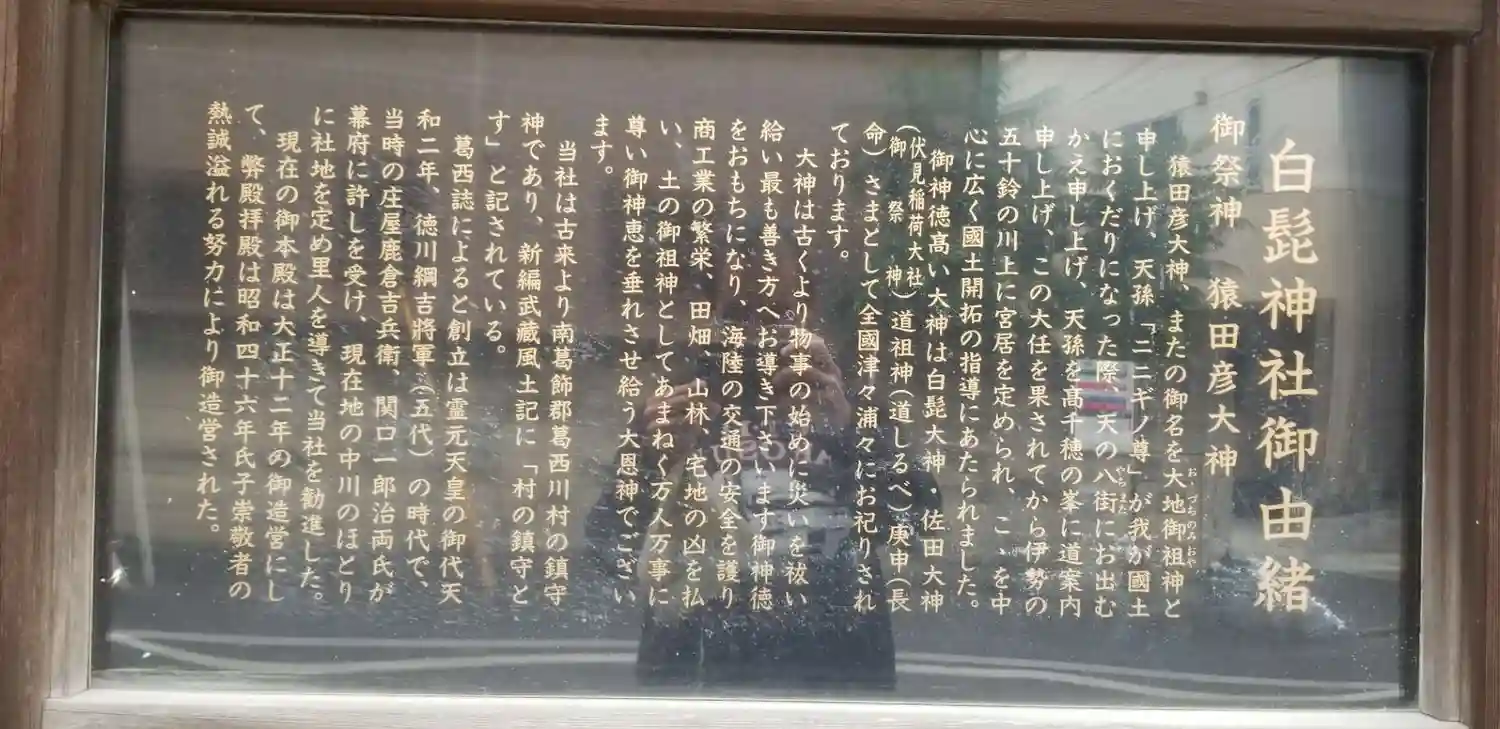 白髭神社御由緒
御祭神　猿田彦大神
猿田彦大神、またの御名を大地御祖神と
おづちのみおや
申し上げ、天孫「ニニギノ尊」が我が國土
におくだりになった際、天の八街にお出む
やちまた
かえ申し上げ、天孫を高千穂の峯に道案内
申し上げ、この大任を果されてから伊勢の
五十鈴の川上に宮居を定められ、こゝを中
心に広く國土開拓の指導にあたられました。
御神徳高い大神は白髭大神・佐田大神
（伏見稲荷大社御祭神）道祖神（道しるべ）庚申（長
命）さまとして全國津々浦々にお祀りされ
ております。
大神は古くより物事の始めに災いを祓い
給い最も善き方へお導き下さいます御神徳
をおもちになり、海陸の交通の安全を護り
商工業の繁栄、田畑、山林、宅地の凶を払
い、土の御祖神としてあまねく万人万事に
尊い御神恵を垂れさせ給う大恩神でござい
ます。
当社は古来より南葛飾郡葛西川村の鎮守
神であり、新編武蔵風土記に「村の鎮守と
す」と記されている。
葛西誌によると創立は霊元天皇の御代天
和二年、徳川綱吉將軍（五代）の時代で、
当時の庄屋鹿倉吉兵衛、関口一郎治両氏が
幕府に許しを受け、現在地の中川のほとり
に社地を定め里人を導きて当社を勧進した。
現在の御本殿は大正十二年の御造営にし
て、弊殿拝殿は昭和四十六年氏子崇敬者の
熱誠溢れる努力により御造営された。